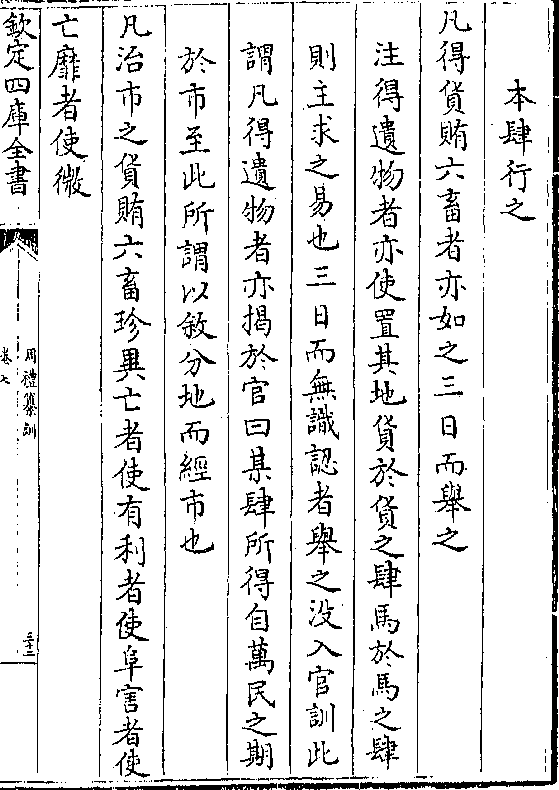 本肆行之
凡得貨賄六畜者亦如之三日而舉之
注得遺物者亦使置其地貨於貨之肆馬於馬之肆
則主求之易也三日而無識認者舉之没入官訓此
謂凡得遺物者亦揭於官曰某肆所得自萬民之期
於市至此所謂以敘分地而經市也
凡治市之貨賄六畜珍異亡者使有利者使阜害者使
亡靡者使微
欽定四庫全書
周禮纂訓
卷七
三十二